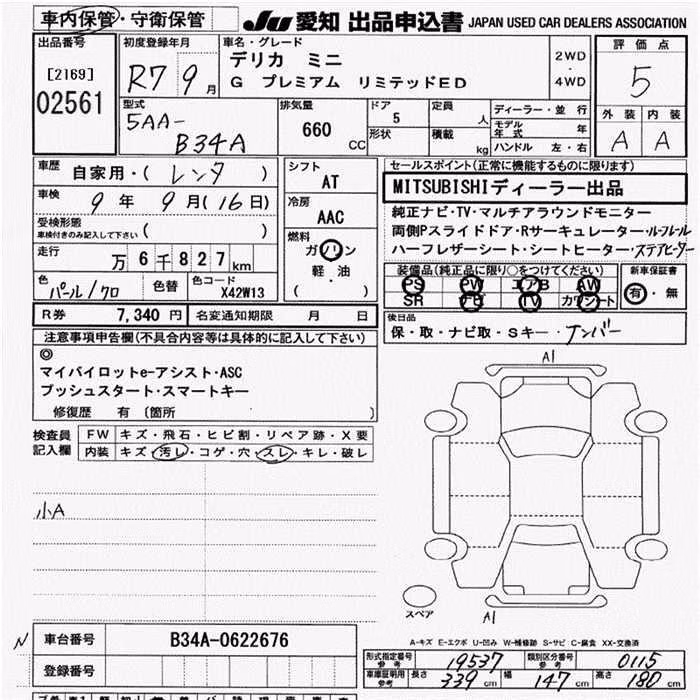 車内保管・守衛保管 JU 愛知 出品申込書 JAPAN USED CAR DEALERS ASSOCIATION
出品番号 [2169] 02561
初度登録年月 R7 9月
車名・グレード
デリカ ミニ
G プレミアム リミテッドED
2WD・4WD
評価点 5
外装 内装
A A
型式 5AA-B34A
排気量 660 CC
ドア 5
形状
定員 人
積載 kg
ディーラー・並行
モデル年式 年
ハンドル 左・右
車歴 自家用・(レンタ)
車検 9年9月(16日)
受検形態
車検付きのみ記入して下さい ( )
走行 万6千827km
色 パール/クロ 色替 色コード X42W13
シフト AT
冷房 AAC
燃料 ガソリン
軽・油
( )
セールスポイント(正常に機能するものに限ります)
MITSUBISHIディーラー出品
純正ナビ・TV・マルチアラウンドモニター
両側Pスライドドア・Rサーキュレーター・ルーフレール
ハーフレザーシート・シートヒーター・ステアヒーター
装備品(純正品に限り○をつけてください)
PS PW エアB AW
SR ナビ TV カワシート
新車保証書
有・無
R券 7,340円 名変通知期限 月 日
後日品
保・取・ナビ取・Sキー・ナンバー
注意事項申告欄(不具合内容等は具体的に記入して下さい)
◎
マイパイロットe-アシスト・ASC
プッシュスタート・スマートキー
修復歴 有 〔箇所 〕
検査員記入欄
FW キズ・飛石・ヒビ割・リペア跡・X要
内装 キズ・汚レ・コゲ・穴・スレ・キレ・破レ
小A
A1
スペア
A1
A-キズ E-エクボ U-凹み W-補修跡 S-サビ C-腐食 XX-交換済
N 車台番号 B34A-0622676
登録番号
形式指定番号 参考 19537 類別区分番号 参考 0115
車庫証明用 参考 長さ 339cm 幅 147cm 高さ 180cm